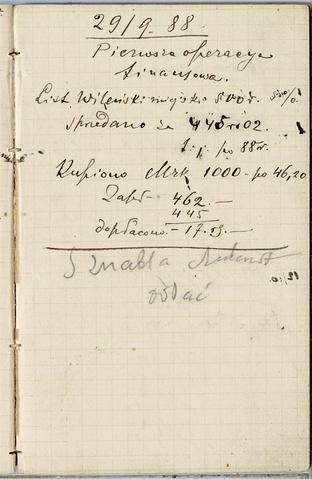 29/9. 88.
Pierwsza operacja
finansowa.
List Wileński miejski 500 r. 5%
sprzedano za 445 r 02.
t. j. po 88 r.
Kupiono Mrk 1000 - po 46,20
Zapł - 462. —
445
dopłacono - 17. —
oddać